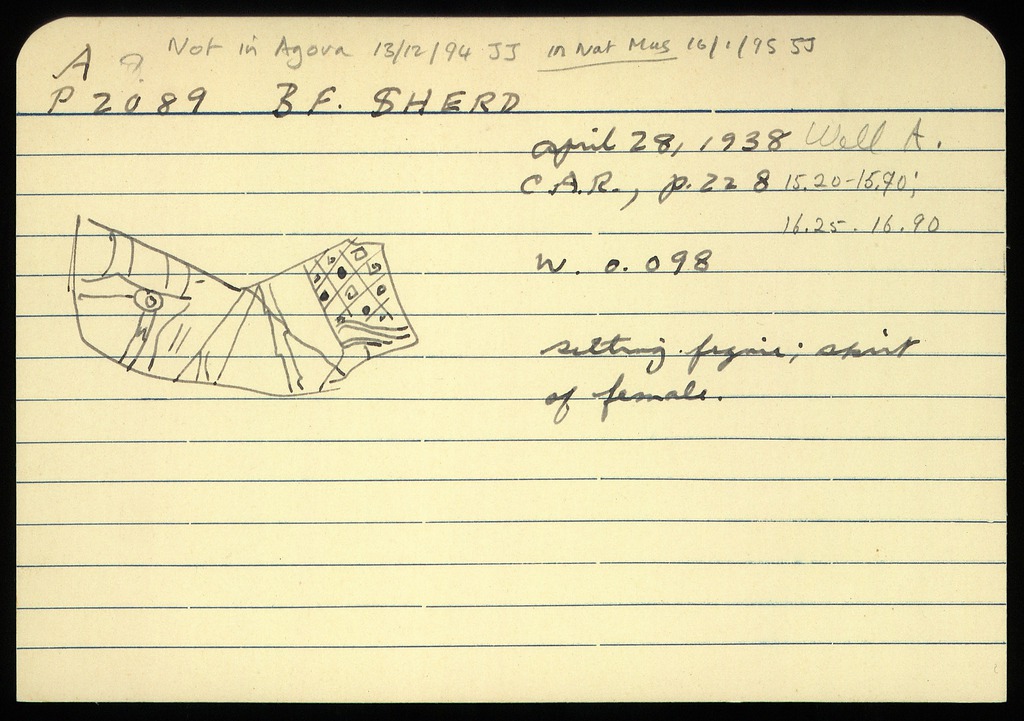 Not in Agora 13/12/94 JJ in Nat Mus 16/1/95 JJ
A
P 2089 B F. SHERD
april 28, 1938 Well A.
C.A.R., p. 228 15.20-15.70;
16.25 - 16.90
W. 0.098
sitting figure; skirt
of female.